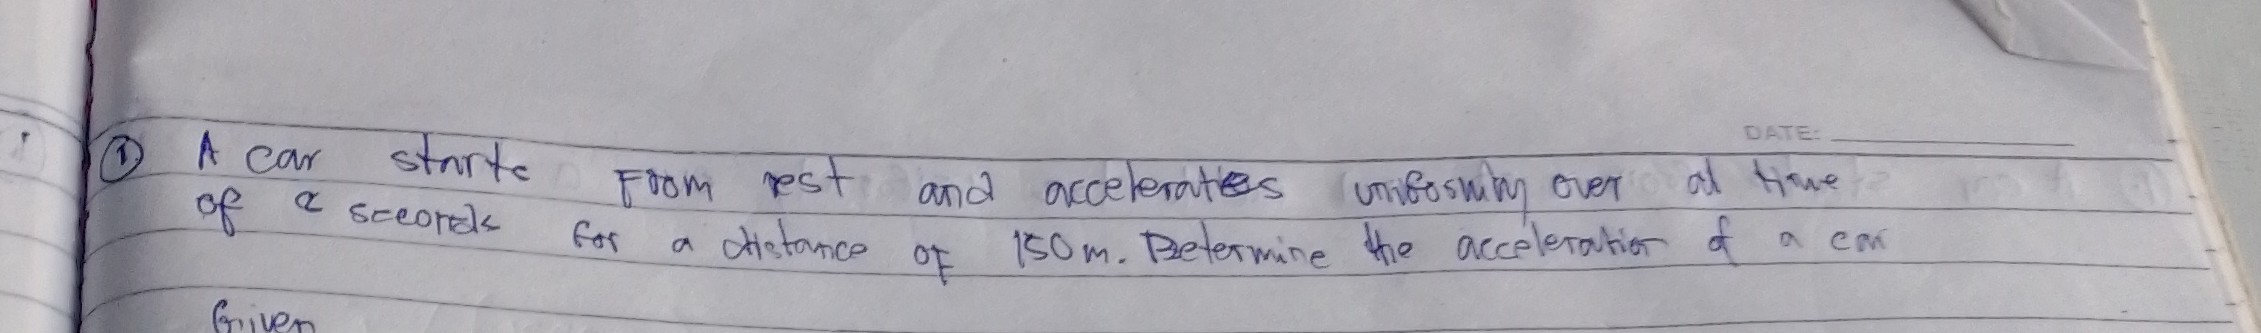 DATE:
① A car starts From rest and accelerates uniformly over at time
of 2 seconds for a distance of 150m. Determine the acceleration of a car
Given